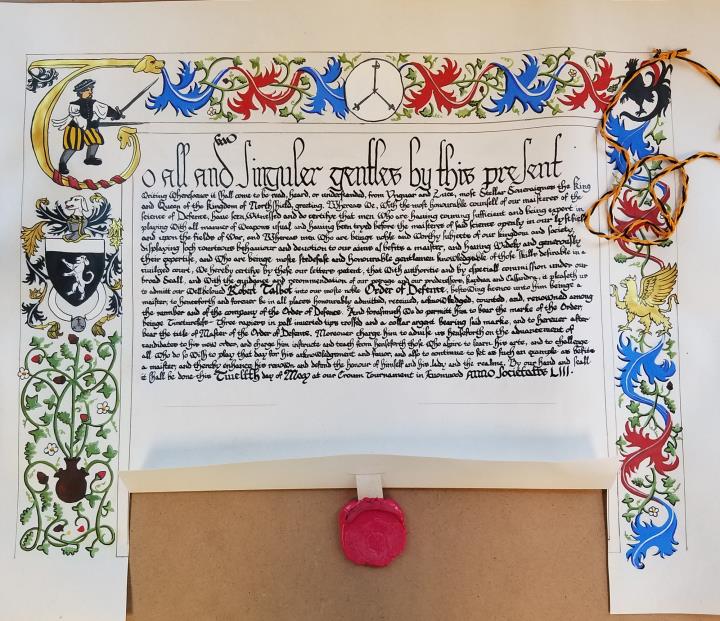 To all and singuler gentles by this present
Writing Wheresoever it shall come to be read, heard, or understanded, from Yngvar and Luce, most Stellar Sovereignes the King
and Queen of the Kingdom of Northshield, greeting. Whereas We, With the most honourable counsell of our maisteres of the
science of Defence, have seen, Witnessed and do certifie that men Who are having cunning sufficient and being expert in
playing With all manner of Weapons usual and having been tryed before the maisteres of said science openly in our lyst field
and upon the fields of War, and Whereas men Who are beinge noble and Worthy subjects of our kingdom and society,
displaying such courteous behaviour and devotion to our arts as befits a maister, and having Widely and generously
their expertise, and Who are beinge most stedfast and honourable gentlemen knowledgable of those skills desirable in a
civilized court, We hereby certifie by these our letters patent, that With authoritie and by especiall commission under our
broad Seall, and With the guidance and recommendation of our peerage and our predecessors, Kaydian and Cassandra, it pleaseth us
to admit our Wellbeloved Robert Talbot into our most noble Order of Defence, bestowing licence unto him beinge a
maister, to henceforth and forever be in all places honourably admitted, received, acknowledged, counted, and, renowned among
the number and of the company of the Order of Defence. And forasmuch We do permitt him to bear the marke of the Order,
beinge Tinctureless- Three rapiers in pall inverted tips crossed and a collar argent bearing said marke, and to herever after-
bear the title of Master of the Order of Defence. Moreover charge him to advise us henceforth on the advancement of
candidates to his new order, and charge him instructe and teach from henseforth those Who aspire to learn his arte, and to challenge
all Who do so Wish to play that day for his acknowledgment and favor, and also to continue to set as such an example as befits
a maister, and thereby enhance his renown and defend the honour of himself and his lady and the realme. By our hand and seall
it shall be done this Twelfth day of May at our Crown Tournament in Anno Societatis LIII.